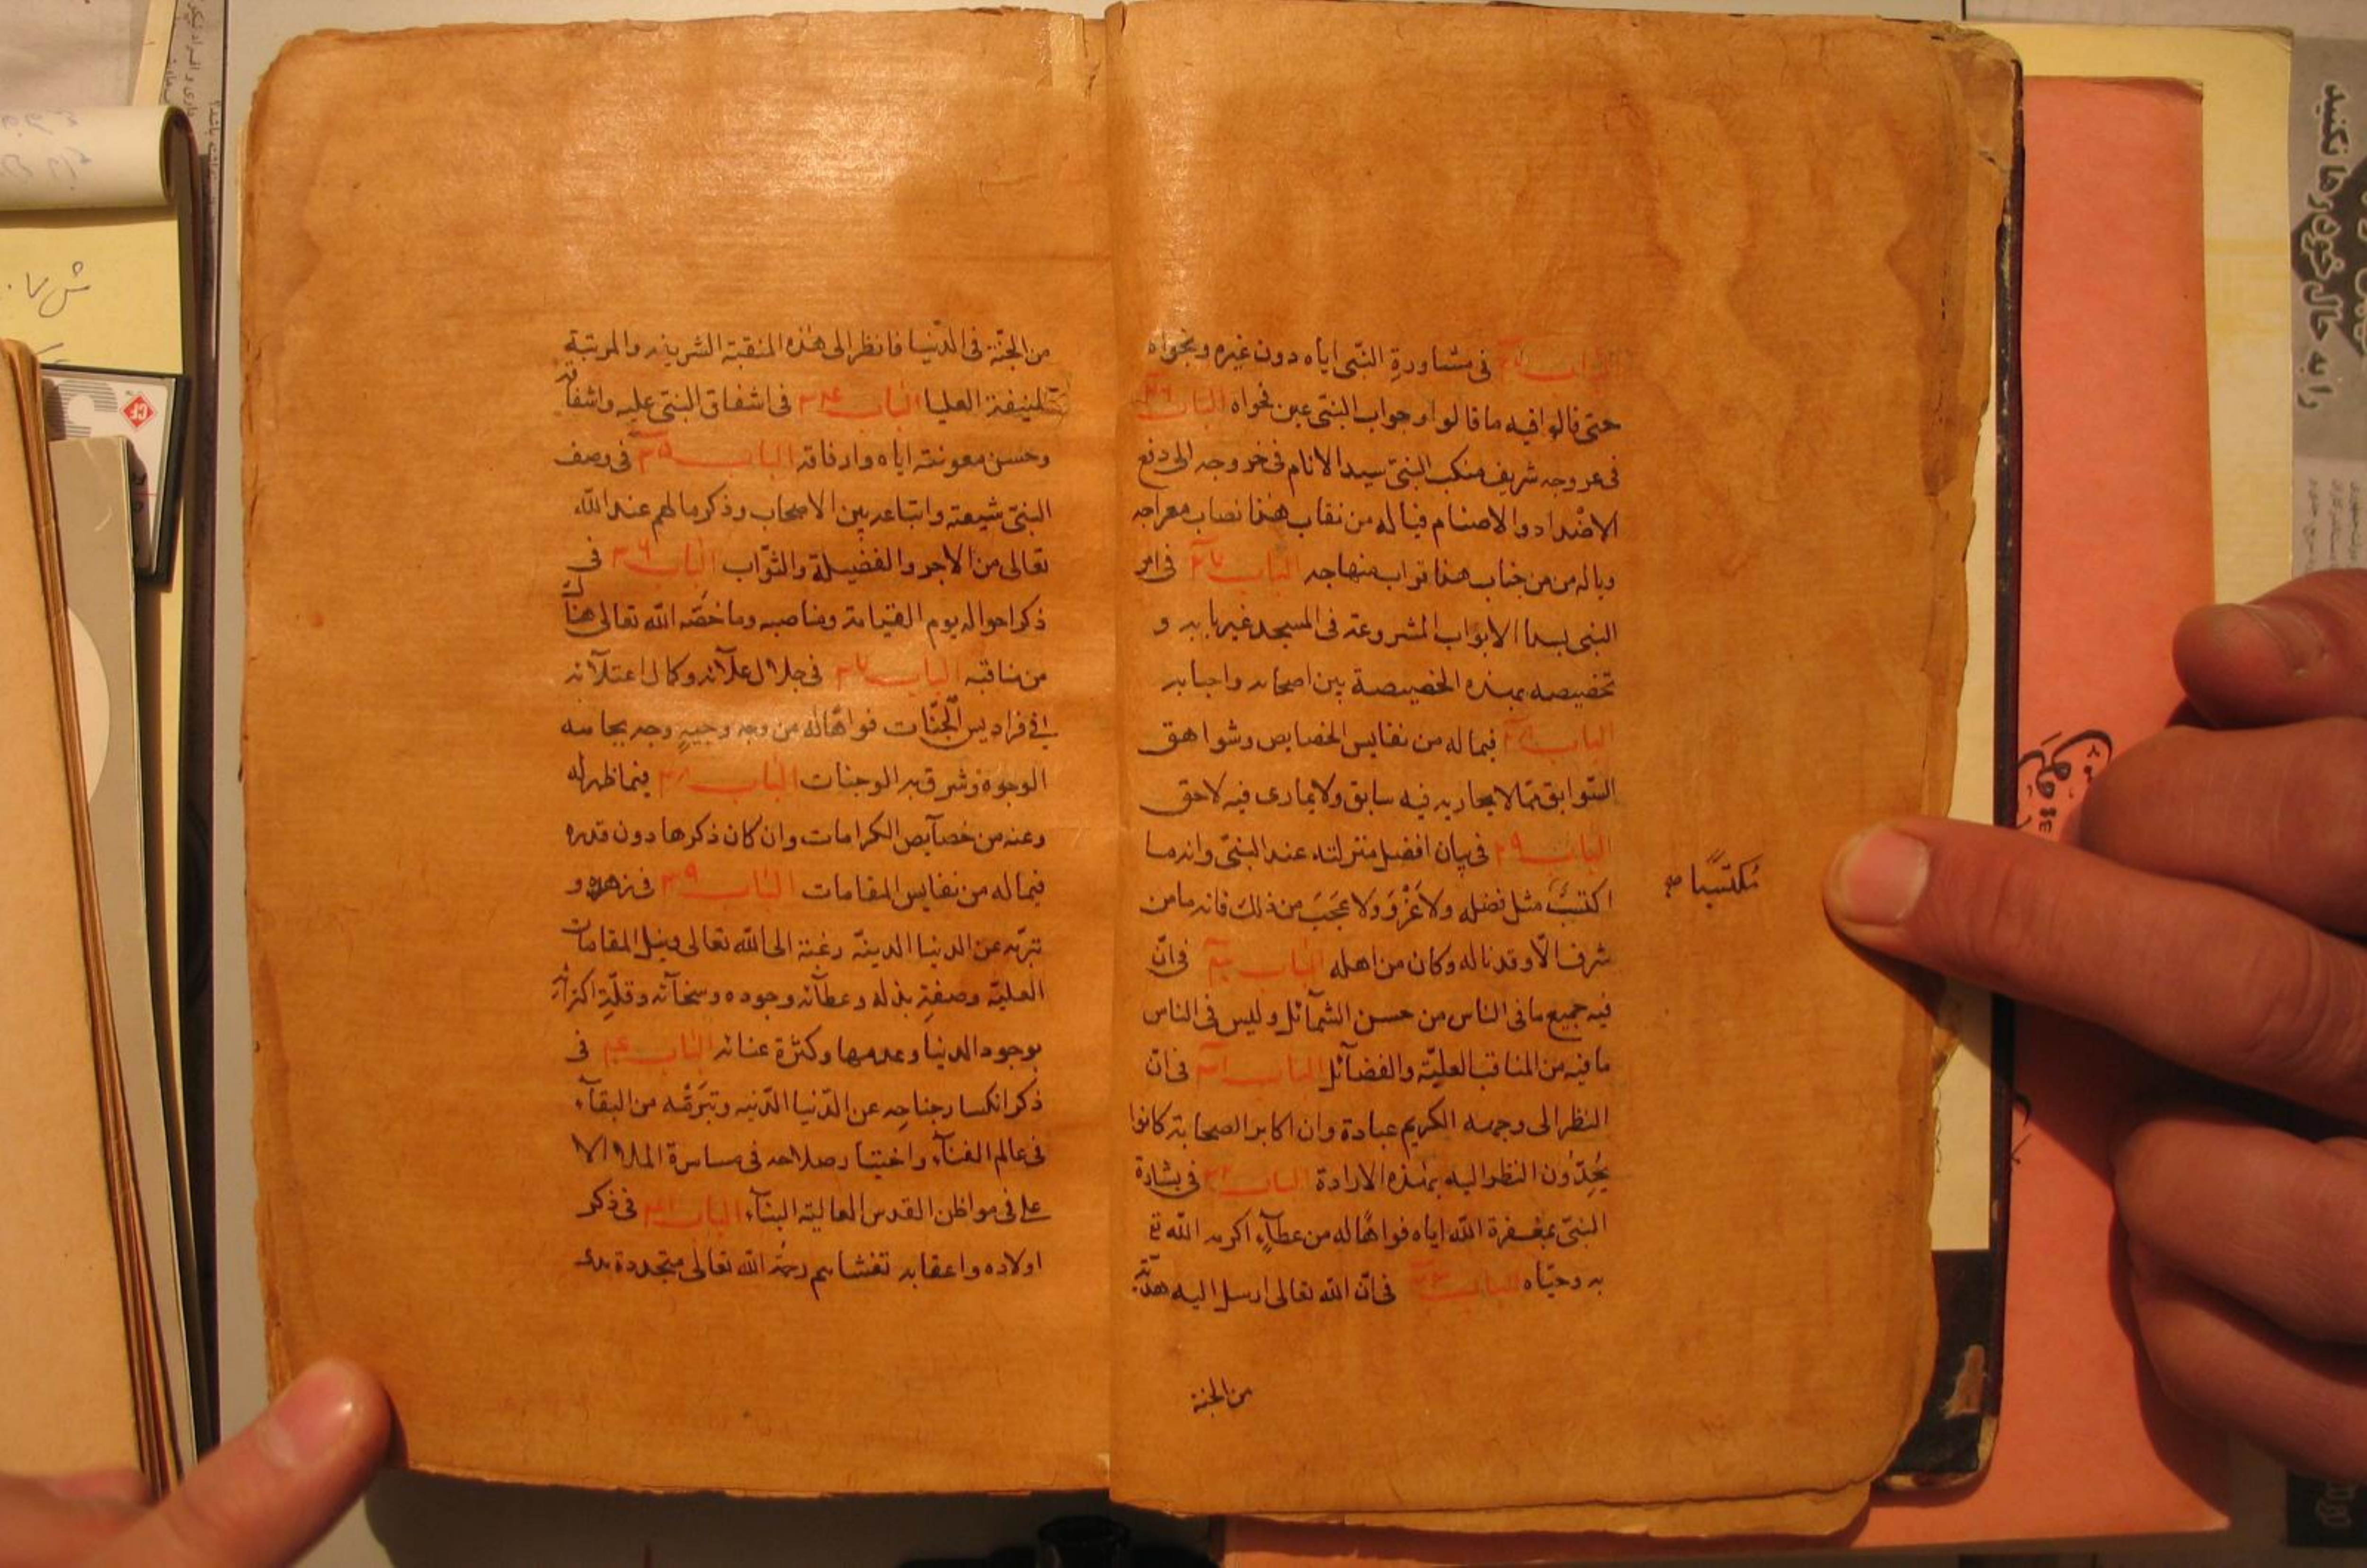 الباب ٢٥ فى مشاورة النبّى اياه دون غيره ونجواه
حتى قالوا فيه ما قالوا وجواب النبّى عين فحواه الباب ٢٦
فى عروجه شريف منكب النبّى سيد الانام فى خروجه الى دفع
الاضداد والاصنام فيا له من نقاب هذا نصاب معراجه
ويا له من من جناب هذا تراب منهاجه الباب ٢٧ فى امر
النبى بسد الابواب المشروعة فى المسجد غير بابه و
تخصيصه بهذه الخصيصة بين اصحابه واحبابه
الباب ٢٨ فيما له من نفايس الخصايص وشواهق
السّوابق مّما لا يجاريه فيه سابق ولا يمارى فيه لاحق
الباب ٢٩ فى بيان افضل منزلته عند النبّى وانه ما
اكتسب مثل فضله ولا غَرْوَ ولا عَجَبَ من ذلك فانه ما من
شرف الّا وقد ناله وكان من اهله الباب ٣٠ فى انّ
فيه جميع ما فى الناس من حسن الشّمآئل وليس فى الناس
ما فيه من المناقب العليّة والفضآئل الباب ٣١ فى انّ
النظر الى وجهه الكريم عبادة وان اكابر الصحابة كانوا
يُحِدّون النظر اليه بهذه الارادة الباب ٣٢ فى بشارة
النبّى بمغفرة اللّه اياه فواهًا له من عطآءٍ اكرمه اللّه تع
به وحبّاه الباب ٣٣ فى انّ اللّه تعالى ارسل اليه هديّة
مُكتَسِبًا صح
من الجنة
من الجنّة فى الدّنيا فانظر الى هذه المنقبة الشريفة والمرتبة
المنيفة العليا الباب ٣٤ فى اشفاق النبّى عليه واشفاقه
وحسن معونته اياه وارفاقه الباب ٣٥ فى وصف
النبّى شيعته واتباعه بين الاصحاب وذكر ما لهم عند اللّه
تعالى من الاجر والفضيلة والثّواب الباب ٣٦ فى
ذكر احواله يوم القيامة ومناصبه وما خصّه اللّه تعالى هنالك
من مناقبه الباب ٣٧ فى جلال علآئه وكمال اعتلآئه
فى فراديس الجّنات فواهًا له من وجه وجيهٍ وجه بجاهه
الوجوه وشرق به الوجنات الباب ٣٨ فيما ظهر له
وعنه من خصآيص الكرامات وان كان ذكرها دون قدره
فيما له من نفايس المقامات الباب ٣٩ فى زهده و
تبرّيه عن الدنيا الدينّة رغبة الى اللّه تعالى ونيل المقامات
العليّة وصفةِ بذله وعطآئه وجوده وسخآئه وقلّةِ اكتراثه
بوجود الدنيا وعدمها وكثرة عنائه الباب ٤٠ فى
ذكر انكسار جناحه عن الدّنيا الدّنيه وتبرّمه من البقآء
فى عالم الفنآء واختيار صلاحه فى مسامرة الملاء الا
على فى مواطن القدس العالية البنآء الباب ٤١ فى ذكر
اولاده واعقابه تغشاهم رحمة اللّه تعالى متجددة بدء